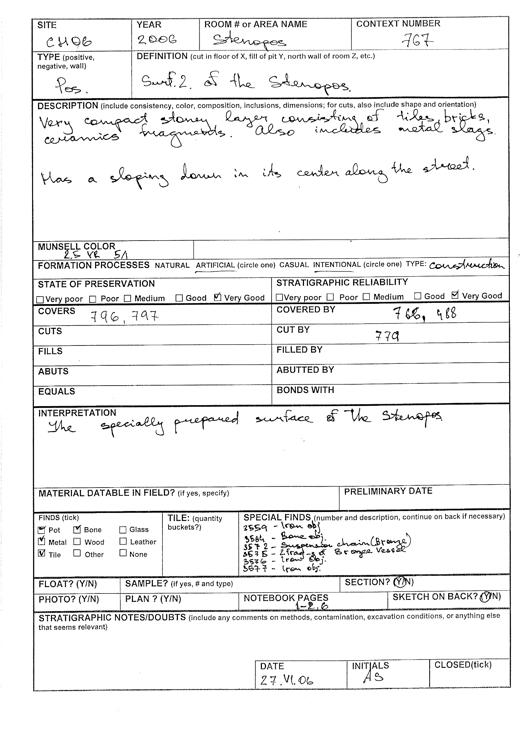 SITE YEAR ROOM # or AREA NAME CONTEXT NUMBER
CH06 2006 Stenopos 767
TYPE (positive, negative, wall) DEFINITION (cut in floor of X, fill of pit Y, north wall of room Z, etc.)
Pos. Surf. 2. of the Stenopos.
DESCRIPTION (include consistency, color, composition, inclusions, dimensions; for cuts, also include shape and orientation)
Very compact stoney layer consisting of tiles, bricks,
ceramics fragments. Also includes metal slags.
Has a sloping down in its center along the street.
MUNSELL COLOR
2.5 YR 5/1
FORMATION PROCESSES NATURAL ARTIFICIAL (circle one) CASUAL INTENTIONAL (circle one) TYPE: construction
STATE OF PRESERVATION STRATIGRAPHIC RELIABILITY
Very poor Poor Medium Good Very Good Very poor Poor Medium Good Very Good
COVERS 796, 797 COVERED BY 766, 488
CUTS CUT BY 779
FILLS FILLED BY
ABUTS ABUTTED BY
EQUALS BONDS WITH
INTERPRETATION
The specially prepared surface of the Stenopos
MATERIAL DATABLE IN FIELD? (if yes, specify) PRELIMINARY DATE
FINDS (tick) TILE: (quantity buckets?) SPECIAL FINDS (number and description, continue on back if necessary)
Pot Bone Glass
Metal Wood Leather
Tile Other None
3559 - Iron obj.
3564 - Bone obj.
3572 - Suspension chain (Bronze)
3575 - 2 frag-s of Bronze Vessel
3576 - Iron obj.
3577 - Iron obj.
FLOAT? (Y/N) SAMPLE? (if yes, # and type) SECTION? (Y/N)
PHOTO? (Y/N) PLAN ? (Y/N) NOTEBOOK PAGES SKETCH ON BACK? (Y/N)
1-2.6
STRATIGRAPHIC NOTES/DOUBTS (include any comments on methods, contamination, excavation conditions, or anything else
that seems relevant)
DATE INITIALS CLOSED(tick)
27.VI.06 AS